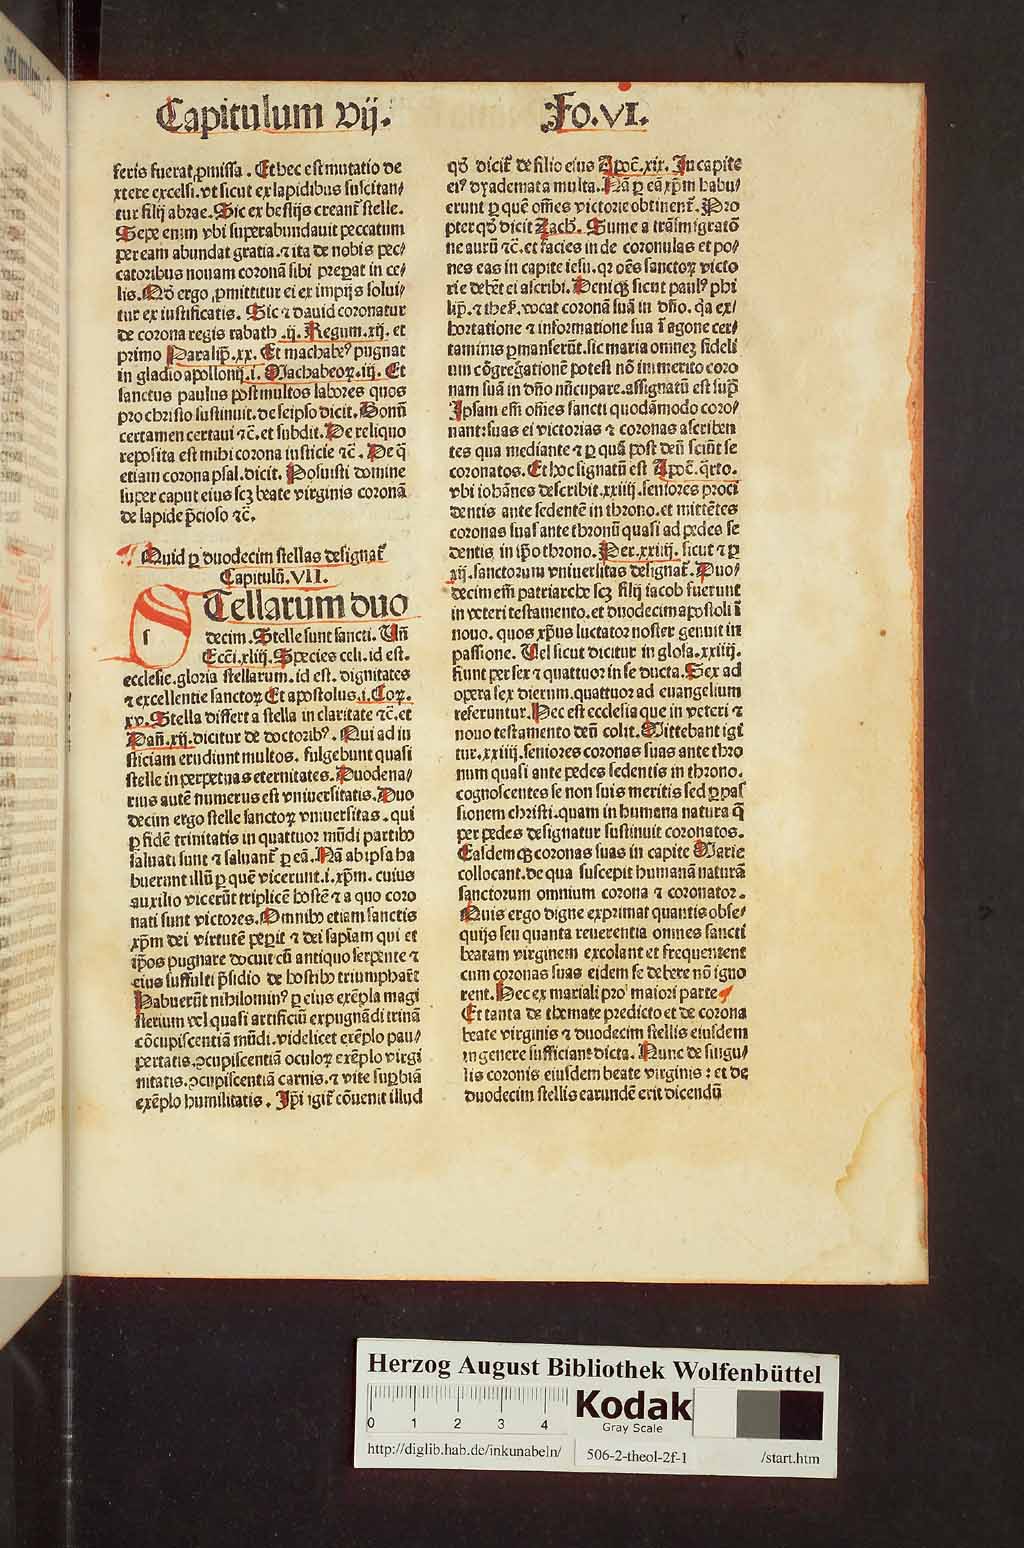 Capitulum vij. Fo.VI.
feris fuerat ꝓmissa . Et hec est mutatio de
xtere excelsi. vt sicut ex lapidibus suscitan/
tur filij abrae. Sic ex bestijs creant̃ stelle.
Sepe enim vbi superabundauit peccatum
per eam abundat gratia. ⁊ ita de nobis pec/
catoribus nouam coronā sibi prep̱at in ce/
lis. Nō ergo ꝓmittitur ei ex impijs solui/
tur ex iustificatis . Sic ⁊ dauid coronatur
de corona regis rabath .ij. Regum.xij. et
primo Paralip̄.xx. Et machabeꝰ pugnat
in gladio apollonij.i. Machabeoꝝ.iij. Et
sanctus paulus post multos labores quos
pro christo sustinuit. de seipso dicit. Bonū
certamen certaui ⁊c̄. et subdit. De reliquo
reposita est mihi corona iusticie ⁊c̄. De q̄
etiam corona psal. dicit. Posuisti domine
super caput eius scꝫ beate virginis coronā
de lapide p̄cioso ⁊c̄.
Quid ꝑ duodecim stellas designat̃
Capitulū.VII.
s STellarum duo
decim. Stelle sunt sancti. Vn̄
Ecc̄i.xliij. Species celi. id est.
ecclesie. gloria stellarum. id est. dignitates
⁊ excellentie sanctoꝝ Et apostolus.i. Coꝝ.
xv. Stella differt a stella in claritate ⁊c̄. et
Dan̄.xij. dicitur de doctoribꝰ. Qui ad iu
sticiam erudiunt multos. fulgebunt quasi
stelle in perpetuas eternitates. Duodena/
rius autē numerus est vniuersitatis. Duo
decim ergo stelle sanctoꝝ vniuersitas. qui
ꝑ fidē trinitatis in quattuor mūdi partibꝰ
saluati sunt ⁊ saluant̃ ꝑ eā. Nā ab ipsa ha
buerunt illū ꝑ quē vicerunt.i. xp̄m. cuius
auxilio vicerūt triplicē hostē ⁊ a quo coro
nati sunt victores. Omnibꝰ etiam sanctis
xp̄m dei virtutē peꝑit ⁊ dei sapiam qui et
ip̄os pugnare docuit cū antiquo serpente ⁊
eius suffulti p̄sidio de hostibꝰ triumphaꝛ̄t
Habuerūt nihilominꝰ ꝑ eius exēpla magi
sterium vel quasi artificiū expugnādi trinā
cōcupiscentiā mūdi. videlicet exēplo pau/
pertatis. ↄcupiscentiā oculoꝝ exēplo virgi
nitatis. ↄcupiscentiā carnis. ⁊ vite suꝑbiā
exēplo humilitatis . Ip̄i igit̃ cōuenit illud
qd̄ dicit̃ de filio eius Apoc̄.xix. In capite
eiꝰ dyademata multa. Nā ꝑ eā xp̄m habu/
erunt ꝑ quē om̄es victorie obtinent̃. Pro
pter qd̄ dicit Zach. Sume a trāsmigratō
ne aurū ⁊c̄. et facies inde coronulas et po/
nes eas in capite iesu. qꝛ oēs sanctoꝝ victo
rie debēt ei ascribi. Deniqꝫ sicut paulꝰ phi
lip̄. ⁊ thes̄. vocat coronā suā in dn̄o. q̄a ex/
hortatione ⁊ informatione sua ī agone cer/
taminis ꝑmanserūt. sic maria omneꝫ fideli
um cōgregationē potest nō immerito coro
nam suā in dn̄o nūcupare. assignatū est sup̄
Ipsam em̄ om̄es sancti quodāmodo coro/
nant: suas ei victorias ⁊ coronas ascriben
tes qua mediante ⁊ ꝑ quā post deū sciūt se
coronatos. Et hoc signatū est Apoc̄. q̄rto.
vbi iohānes describit .xxiiij. seniores proci
dentis ante sedentē in throno. et mittētes
coronas suas ante thronū quasi ad pedes se
dentis in ip̄o throno. Per .xxiiij. sicut ⁊ ꝑ
xij. sanctorum vniuersitas designat̃. Duo/
decim em̄ patriarche scꝫ filij iacob fuerunt
in veteri testamento. et duodecim apostoli ī
nouo. quos xp̄us luctator noster genuit in
passione. Vel sicut dicitur in glosa. xxiiij.
fiunt per sex ⁊ quattuor in se ducta. Sex ad
opera sex dierum. quattuor ad euangelium
referuntur. Hec est ecclesia que in veteri ⁊
nouo testamento deū colit. Mittebant igi
tur .xxiiij. seniores coronas suas ante thro
num quasi ante pedes sedentis in throno.
cognoscentes se non suis meritis sed ꝑ pas
sionem christi. quam in humana natura q̄
per pedes designatur sustinuit coronatos.
Easdemqꝫ coronas suas in capite Marie
collocant. de qua suscepit humanā naturā
sanctorum omnium corona ⁊ coronator.
Quis ergo digne exprimat quantis obse/
quijs seu quanta reuerentia omnes sancti
beatam virginem excolant et frequentent
cum coronas suas eidem se debere nō igno
rent. Hec ex mariali pro maiori parte
Et tanta de themate predicto et de corona
beate virginis ⁊ duodecim stellis eiusdem
in genere sufficiant dicta. Nunc de singu/
lis coronis eiusdem beate virginis : et de
duodecim stellis earundē erit dicendū
Herzog August Bibliothek Wolfenbüttel
0 1 2 3 4
Kodak
Gray Scale
http://diglib.hab.de/inkunabeln/ 506-2-theol-2f-1 /start.htm